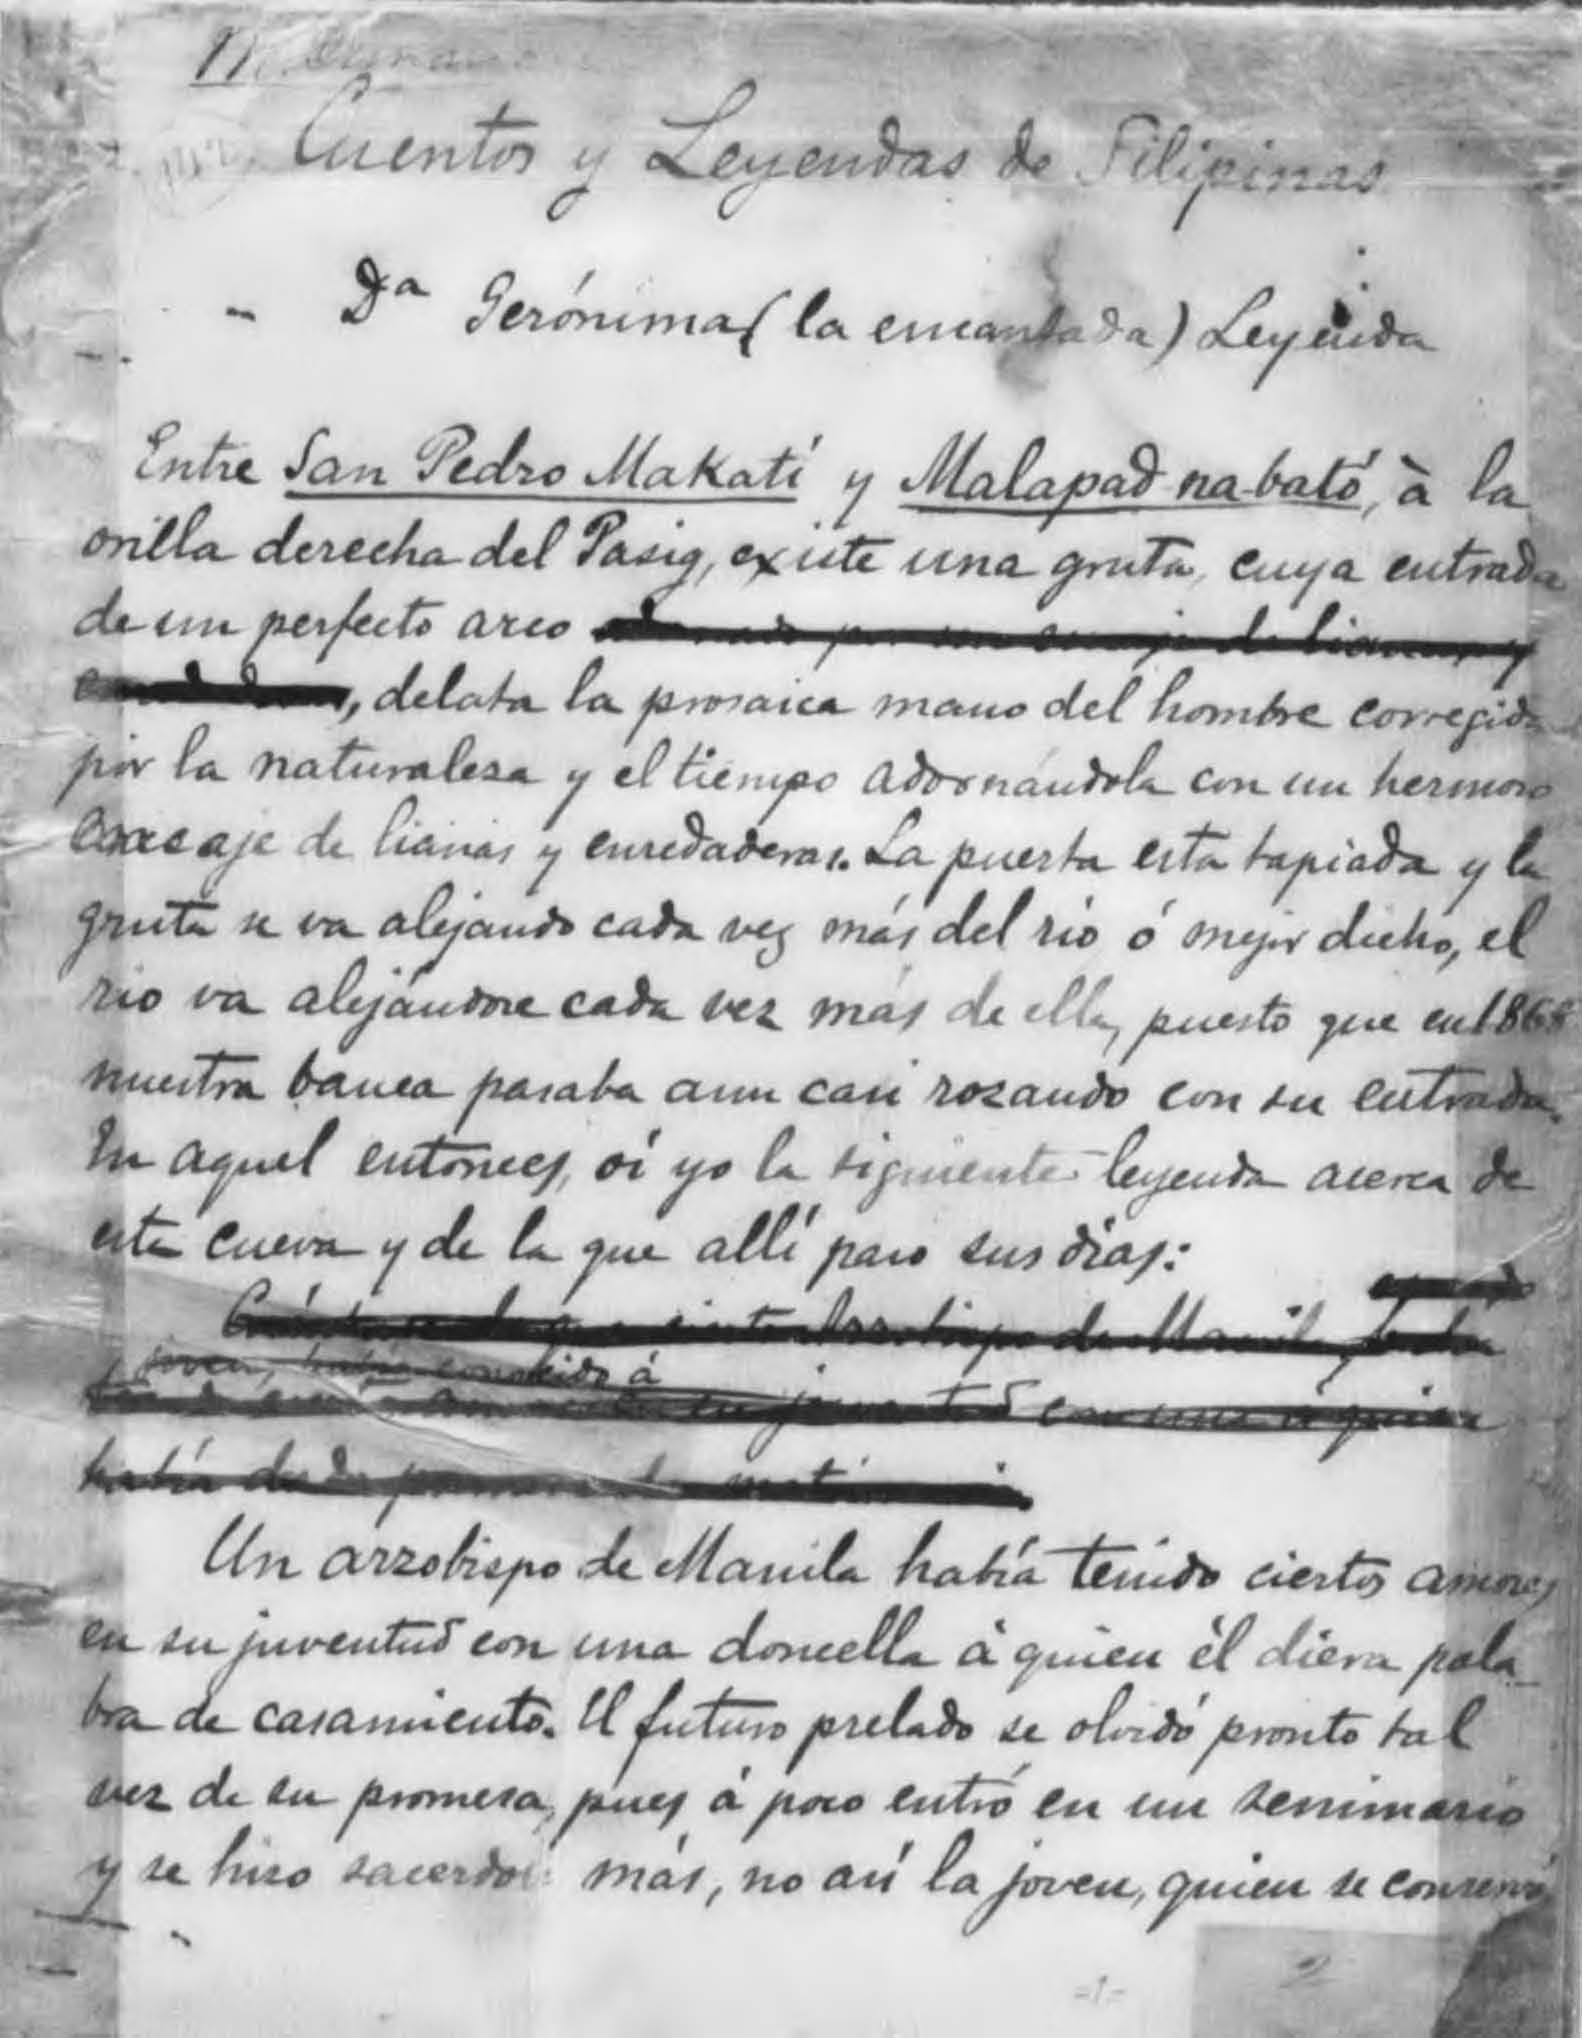 Cuentos y Leyendas de Filipinas
- Dª Gerónima (la encantada) Leyenda
Entre San Pedro Makati y Malapad-na-bató, à la
orilla derecha del Pasig, existe una gruta, cuya entrada
de un perfecto arco
, delata la prosaica mano del hombre corregida
por la naturalesa y el tiempo adornándola con un hermoso
de lianas y enredaderas. La puerta esta tapiada y la
gruta se va alejando cada vez más del rio ó mejor dicho, el
rio va alejándose cada vez más de ella, puesto que en 1868
nuestra banca pasaba aun casi rozando con su entrada.
En aquel entonces, oí yo la siguiente leyenda acerca de
esta cueva y de la que allí paso sus dias:
joven, había conocido á
Un arzobispo de Manila había tenido ciertos amores
en su juventud con una doncella á quien él diera pala
bra de casamiento. El futuro prelado se olvidó pronto tal
vez de su promesa, pues á poco entró en un seminario
y se hizo sacerdote más, no así la joven, quien se conservó
-1-
2